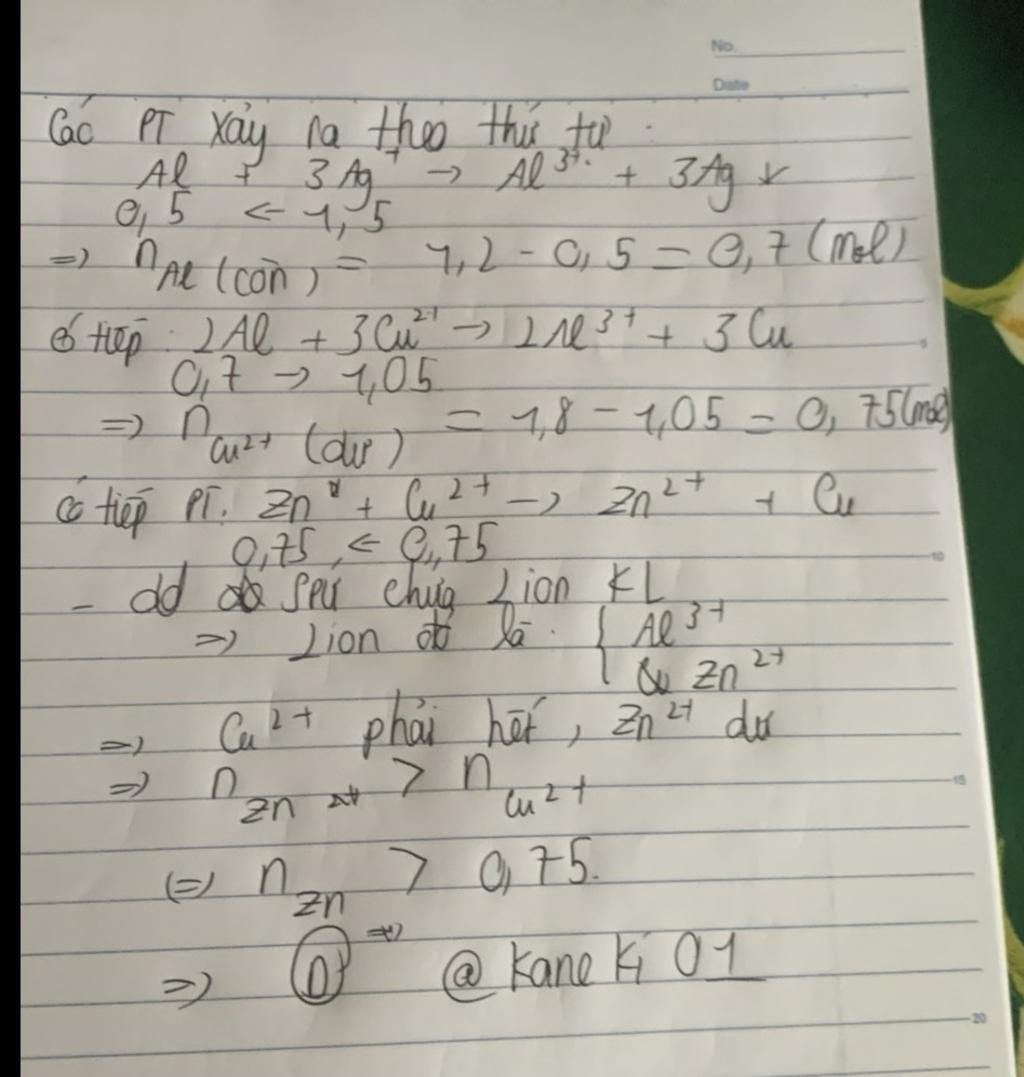 No.
Date
Các PT xảy ra theo thứ tự.
Al + 3Ag⁺ → Al³⁺ + 3Ag ↓
0,5 ← 1,5
=> nAl (còn) = 1,2 - 0,5 = 0,7 (mol)
Có tiếp: 2Al + 3Cu²⁺ → 2Al³⁺ + 3Cu
0,7 → 1,05
=> nCu²⁺ (dư) = 1,8 - 1,05 = 0,75 (mol)
Có tiếp PT: Zn + Cu²⁺ → Zn²⁺ + Cu
0,75 ← 0,75
- dd sau chứa 2 ion KL
=> 2 ion đó là: { Al³⁺
Zn²⁺
=> Cu²⁺ phải hết, Zn²⁺ dư
=> nZn > nCu²⁺
(=) nZn > 0,75.
=> D => @ Kane Ki 01
5
10
15
20